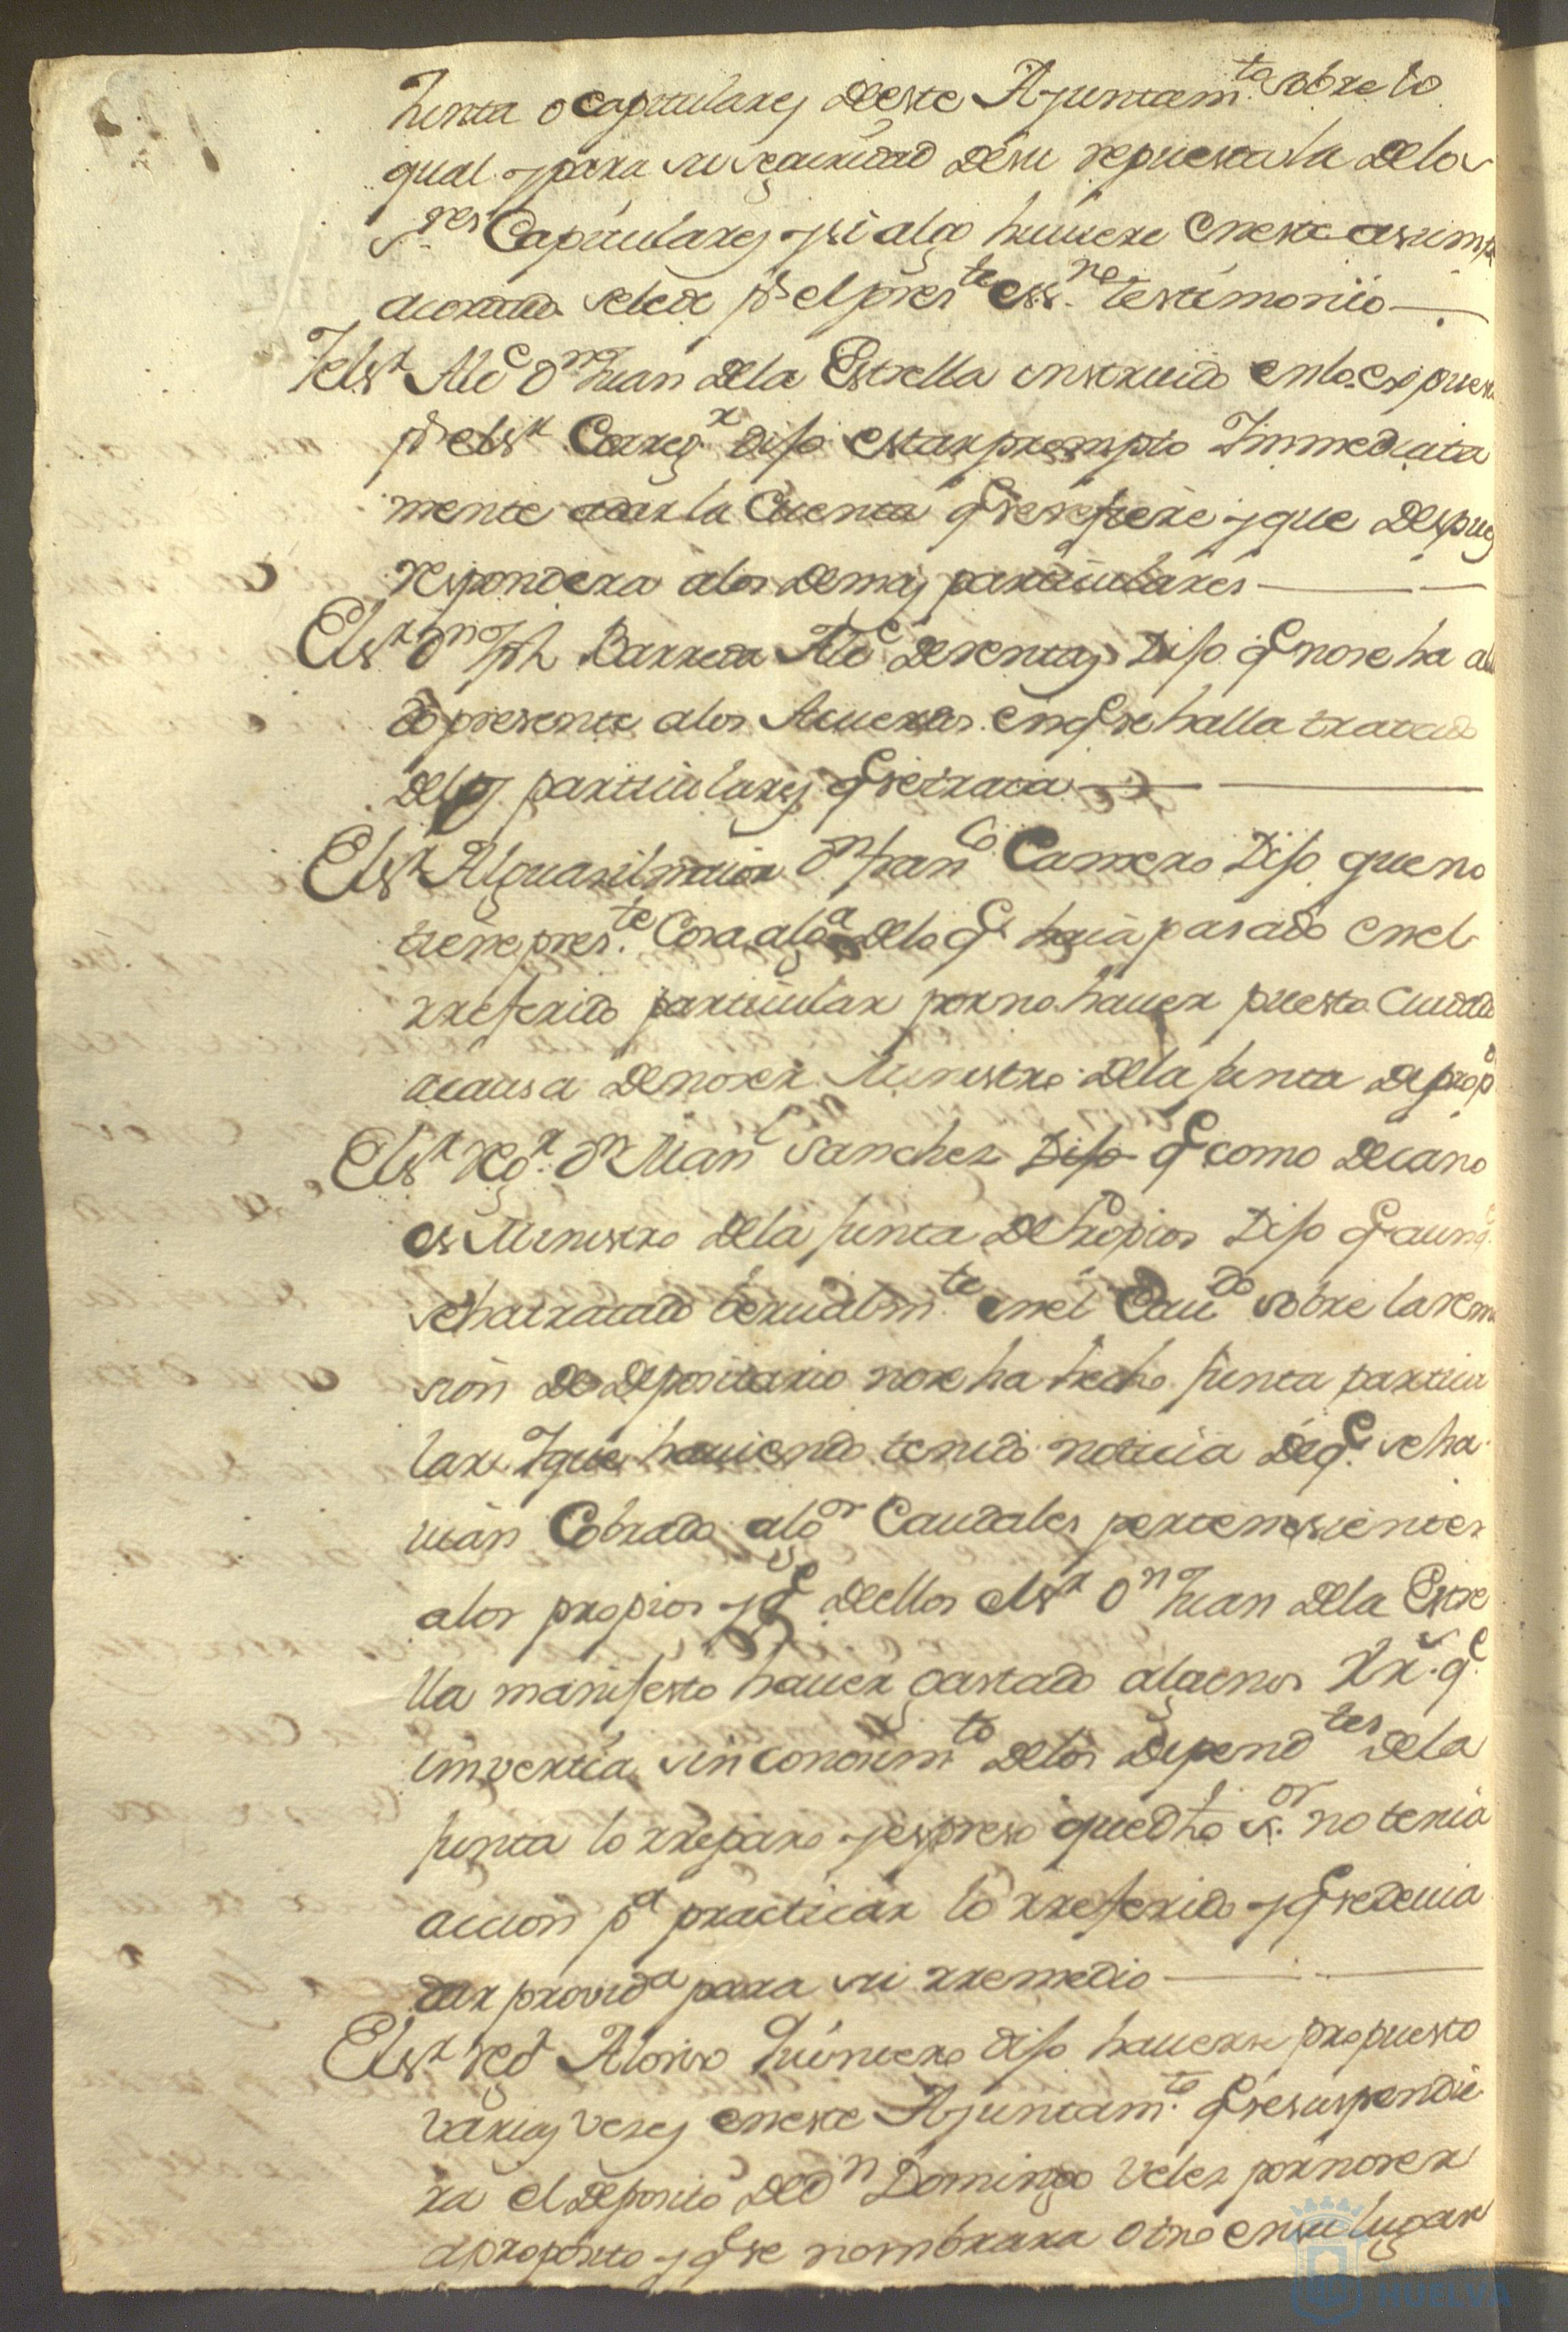 Junta o capitulares deeste Ajuntam.to sobre lo
qual y para su seguridad desu repuesta la delos
S.res Capitulares y si algo huuiere eneste asumpt
acordado sele de p.r el pres.te ess.no testimonio
Yel S.r Alc.e D.n Juan dela Estrella instruido enlo expues
p.r el S.r Correg.r Dijo estar prompto Immediata
mente adar la Cuenta q.e se refiere y que despues
respondera alos demas particulares
El S.r D.n Jph Barreda Alc.e derentas Dijo q.e nose ha alla
do presente alos Acuerdos en q.e se halla tratado
delos particulares q.e se trata
El S.r Alguasil maior D.n Fran.co Camero Dijo que no
tiene pres.te Cosa alg.a delo q.e haia pasado enel
rreferido particular por no hauer puesto Cuidado
acausa deno ser Ministro dela Junta de prop.os
El S.r reg.r D.n Man.l Sanchez Dijo q.e como decano
es Ministro dela Junta de Propios Dijo q.e aunq.e
seha tratado berualm.te enel Cau.do sobre la remi
sion de depositario nose ha hecho Junta particu
lar Y que hauiendo tenido noticia deq.e se ha
uian Cobrado alg.os Caudales pertenesientes
alos propios y q.e deellos el S.r D.n Juan dela Estre
lla manifesto hauer gastado algunos Rr.s q.e
imvertia sin conosim.to delos depend.tes dela
Junta lo rreparo y espreso que dho s.or no tenia
accion p.a practicar lo rreferido y q.e se deuia
dar provid.a para su rremedio
El S.r reg.r Alonso Quintero dijo hauerse propuesto
varias veses eneste Ajuntam.to q.e se suspendie
ra el deposito de D.n Domingo Velez por no ser
aproposito y q.e se nombrara otro ensu lugar
HUELVA